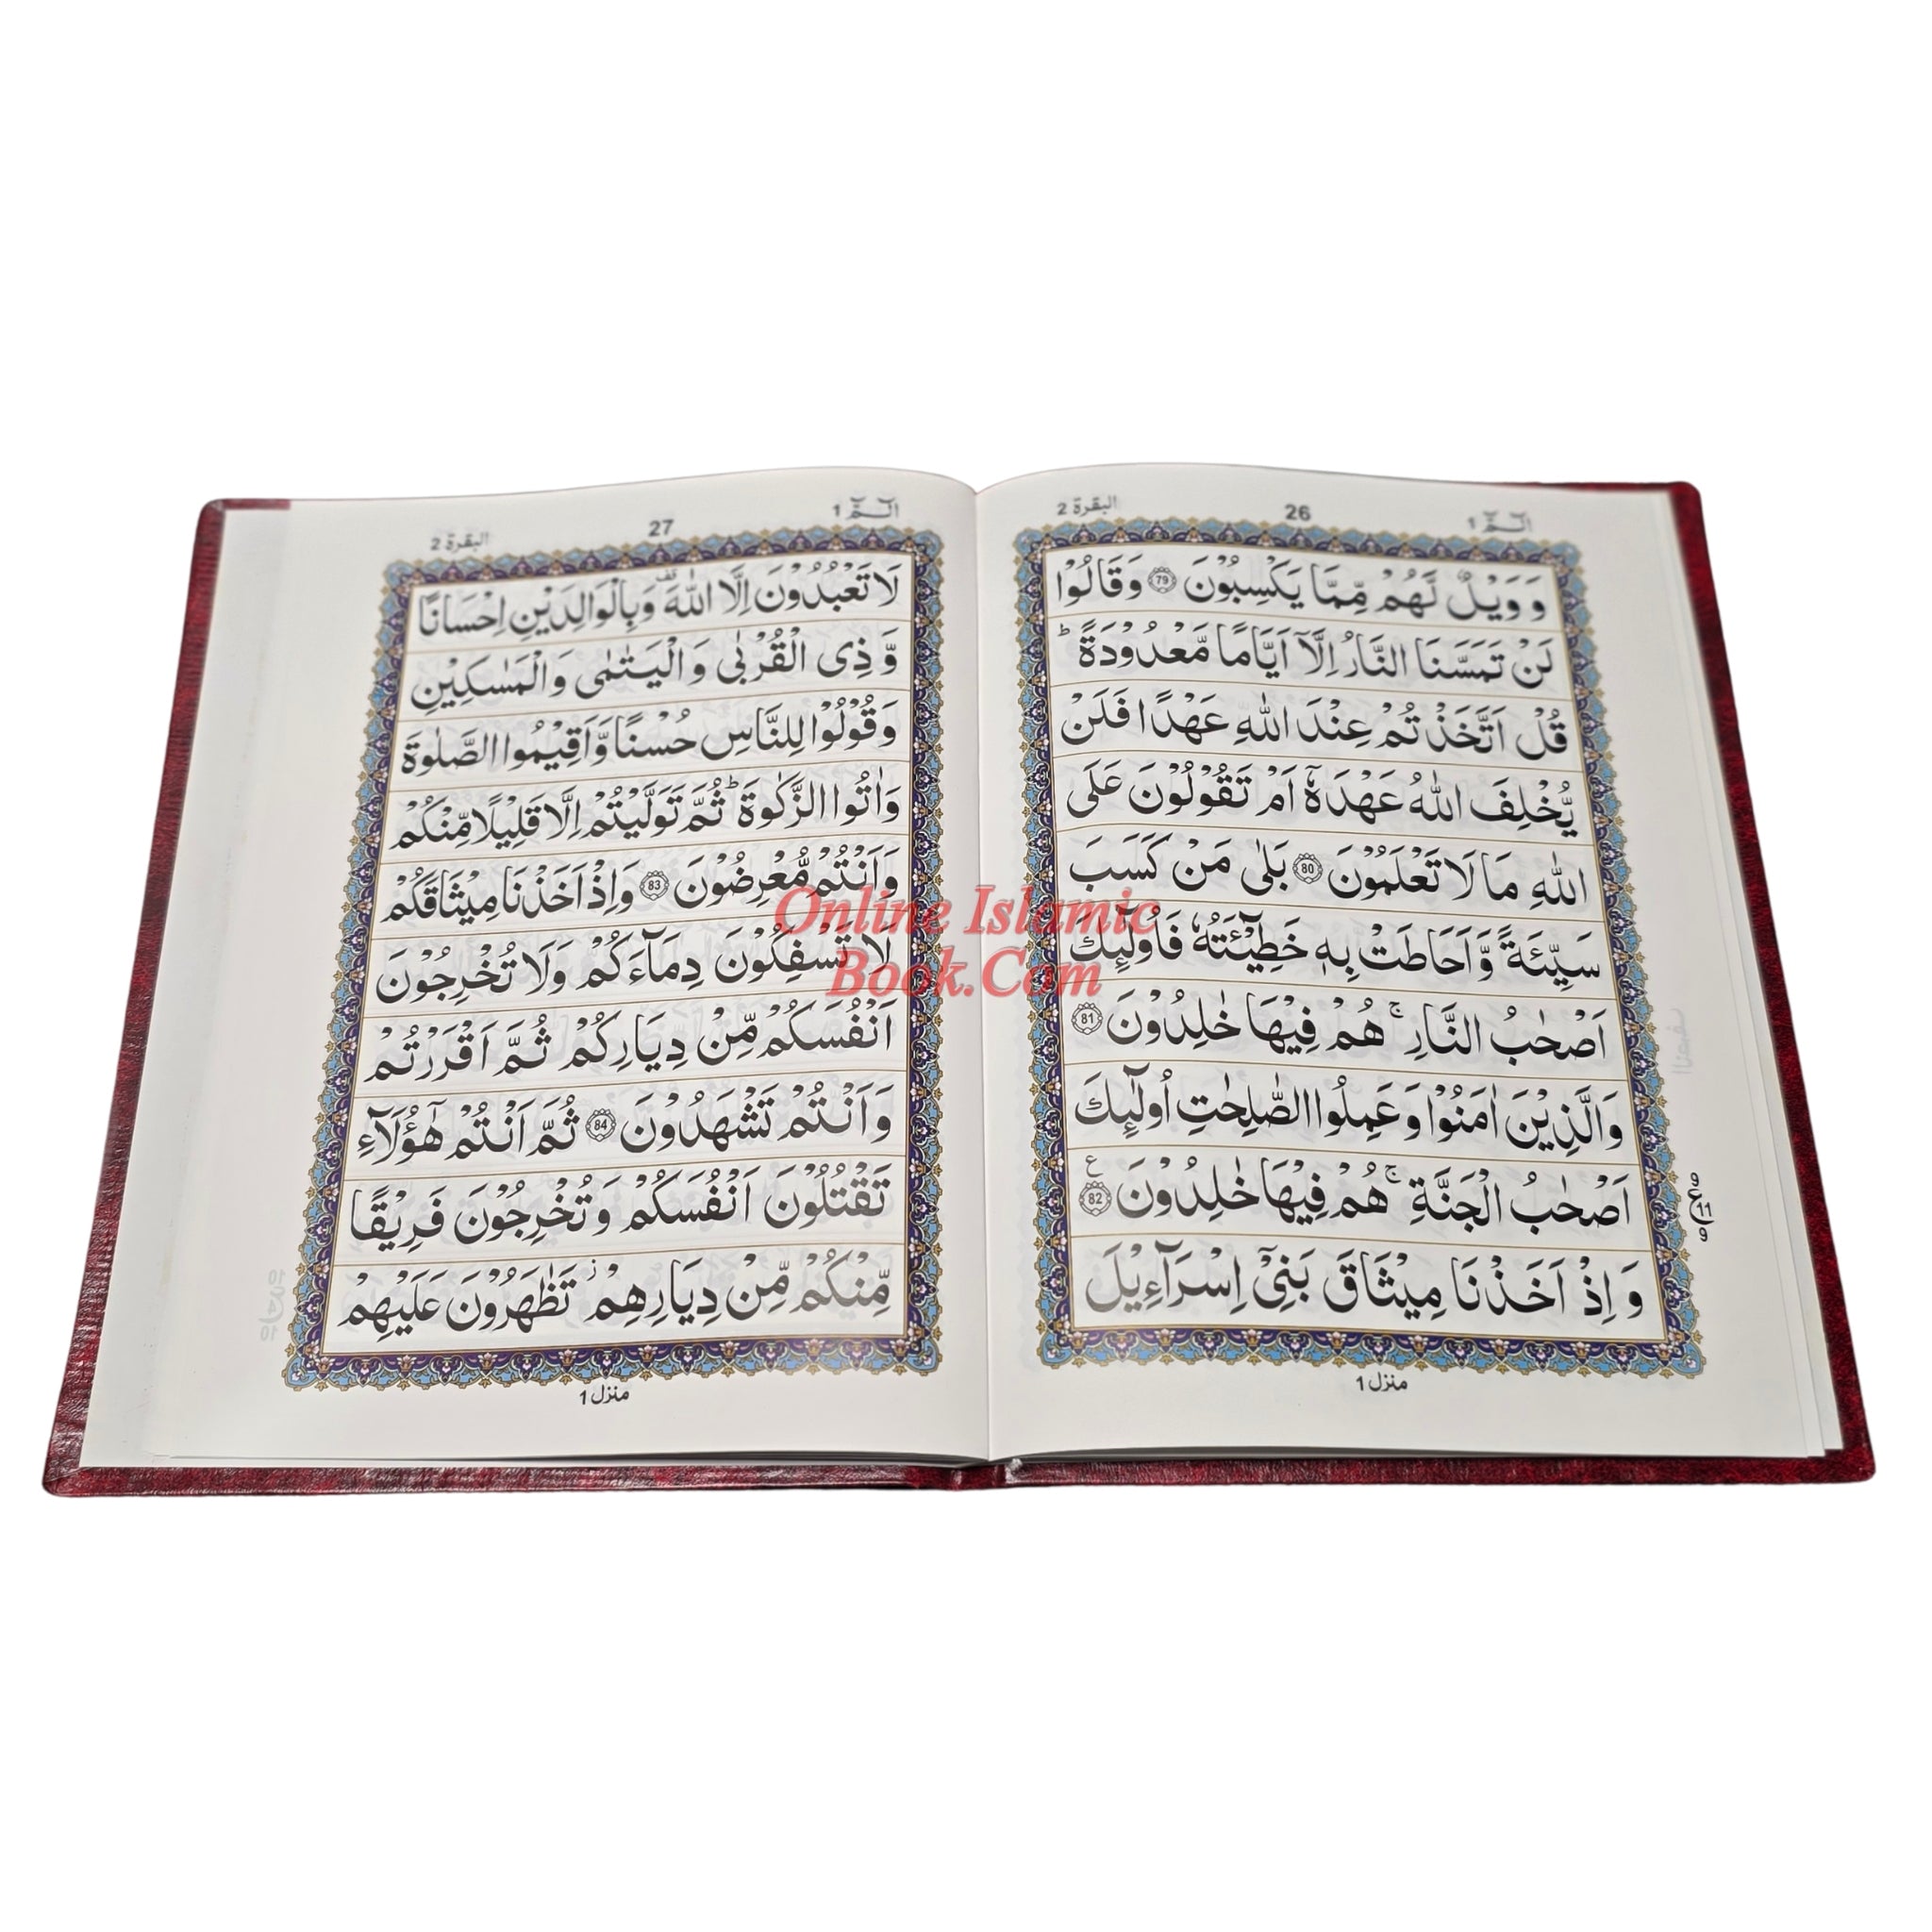 الٓـمّٓ 1
26
البقرة 2
وَ وَيْلٌ لَّهُمْ مِّمَّا يَكْسِبُوْنَ 79 وَقَالُوْا
لَنْ تَمَسَّنَا النَّارُ اِلَّآ اَيَّامًا مَّعْدُوْدَةً ؕ
قُلْ اَتَّخَذْتُمْ عِنْدَ اللّٰهِ عَهْدًا فَلَنْ
يُّخْلِفَ اللّٰهُ عَهْدَهٗٓ اَمْ تَقُوْلُوْنَ عَلَى
اللّٰهِ مَا لَا تَعْلَمُوْنَ 80 بَلٰى مَنْ كَسَبَ
سَيِّئَةً وَّاَحَاطَتْ بِهٖ خَطِيْٓئَتُهٗ فَاُولٰٓئِكَ
اَصْحٰبُ النَّارِ ۚ هُمْ فِيْهَا خٰلِدُوْنَ 81
وَالَّذِيْنَ اٰمَنُوْا وَعَمِلُوا الصّٰلِحٰتِ اُولٰٓئِكَ
اَصْحٰبُ الْجَنَّةِ ۚ هُمْ فِيْهَا خٰلِدُوْنَ 82 ع
وَ اِذْ اَخَذْنَا مِيْثَاقَ بَنِيْٓ اِسْرَآءِيْلَ
منزل 1
ع
11
9
الٓـمّٓ 1
27
البقرة 2
لَا تَعْبُدُوْنَ اِلَّا اللّٰهَ قف وَبِالْوَالِدَيْنِ اِحْسَانًا
وَّ ذِى الْقُرْبٰى وَ الْيَتٰمٰى وَ الْمَسٰكِيْنِ
وَقُوْلُوْا لِلنَّاسِ حُسْنًا وَّاَقِيْمُوا الصَّلٰوةَ
وَاٰتُوا الزَّكٰوةَ ؕ ثُمَّ تَوَلَّيْتُمْ اِلَّا قَلِيْلًا مِّنْكُمْ
وَاَنْتُمْ مُّعْرِضُوْنَ 83 وَاِذْ اَخَذْنَا مِيْثَاقَكُمْ
لَا تَسْفِكُوْنَ دِمَآءَكُمْ وَلَا تُخْرِجُوْنَ
اَنْفُسَكُمْ مِّنْ دِيَارِكُمْ ثُمَّ اَقْرَرْتُمْ
وَاَنْتُمْ تَشْهَدُوْنَ 84 ثُمَّ اَنْتُمْ هٰٓؤُلَآءِ
تَقْتُلُوْنَ اَنْفُسَكُمْ وَتُخْرِجُوْنَ فَرِيْقًا
مِّنْكُمْ مِّنْ دِيَارِهِمْ ز تَظٰهَرُوْنَ عَلَيْهِمْ
منزل 1
Online Islamic
Book.Com